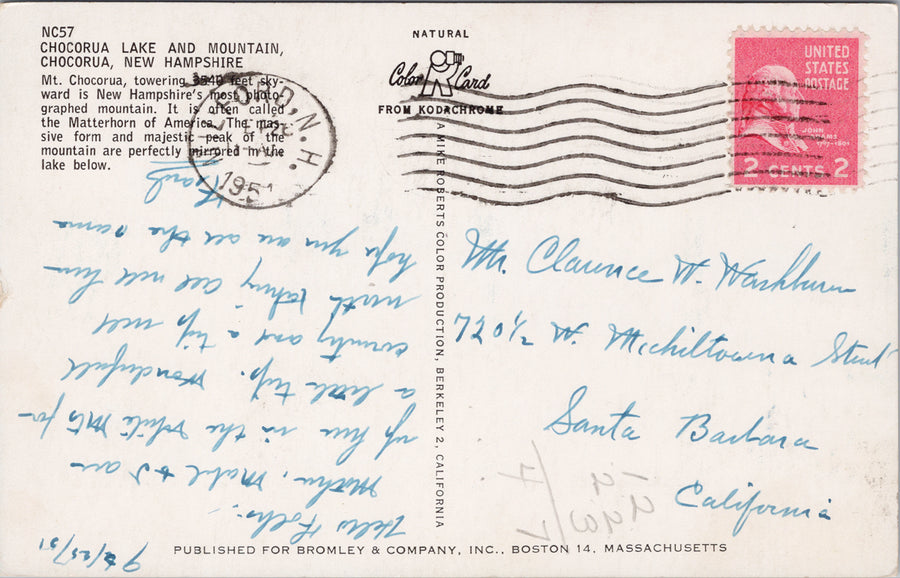 NC57
CHOCORUA LAKE AND MOUNTAIN,
CHOCORUA, NEW HAMPSHIRE
Mt. Chocorua, towering 3540 feet sky-
ward is New Hampshire's most photo-
graphed mountain. It is often called
the Matterhorn of America. The mas-
sive form and majestic peak of the
mountain are perfectly mirrored in the
lake below.
NATURAL
Color Card
FROM KODACHROME
A MIKE ROBERTS COLOR PRODUCTION, BERKELEY 2, CALIFORNIA
UNITED
STATES
POSTAGE
JOHN
ADAMS
1797-1801
2 CENTS 2
N.H.
195
Mr. Clarence W. Washburn
720½ W. Micheltorena Street
Santa Barbara
California
9/25/51
Hello Folks:
Mother, Mabel & I are
up here in the White Mts for
a little trip. Wonderfull
country and a trip well
worth taking All well here
hope you are all the same
PUBLISHED FOR BROMLEY & COMPANY, INC., BOSTON 14, MASSACHUSETTS